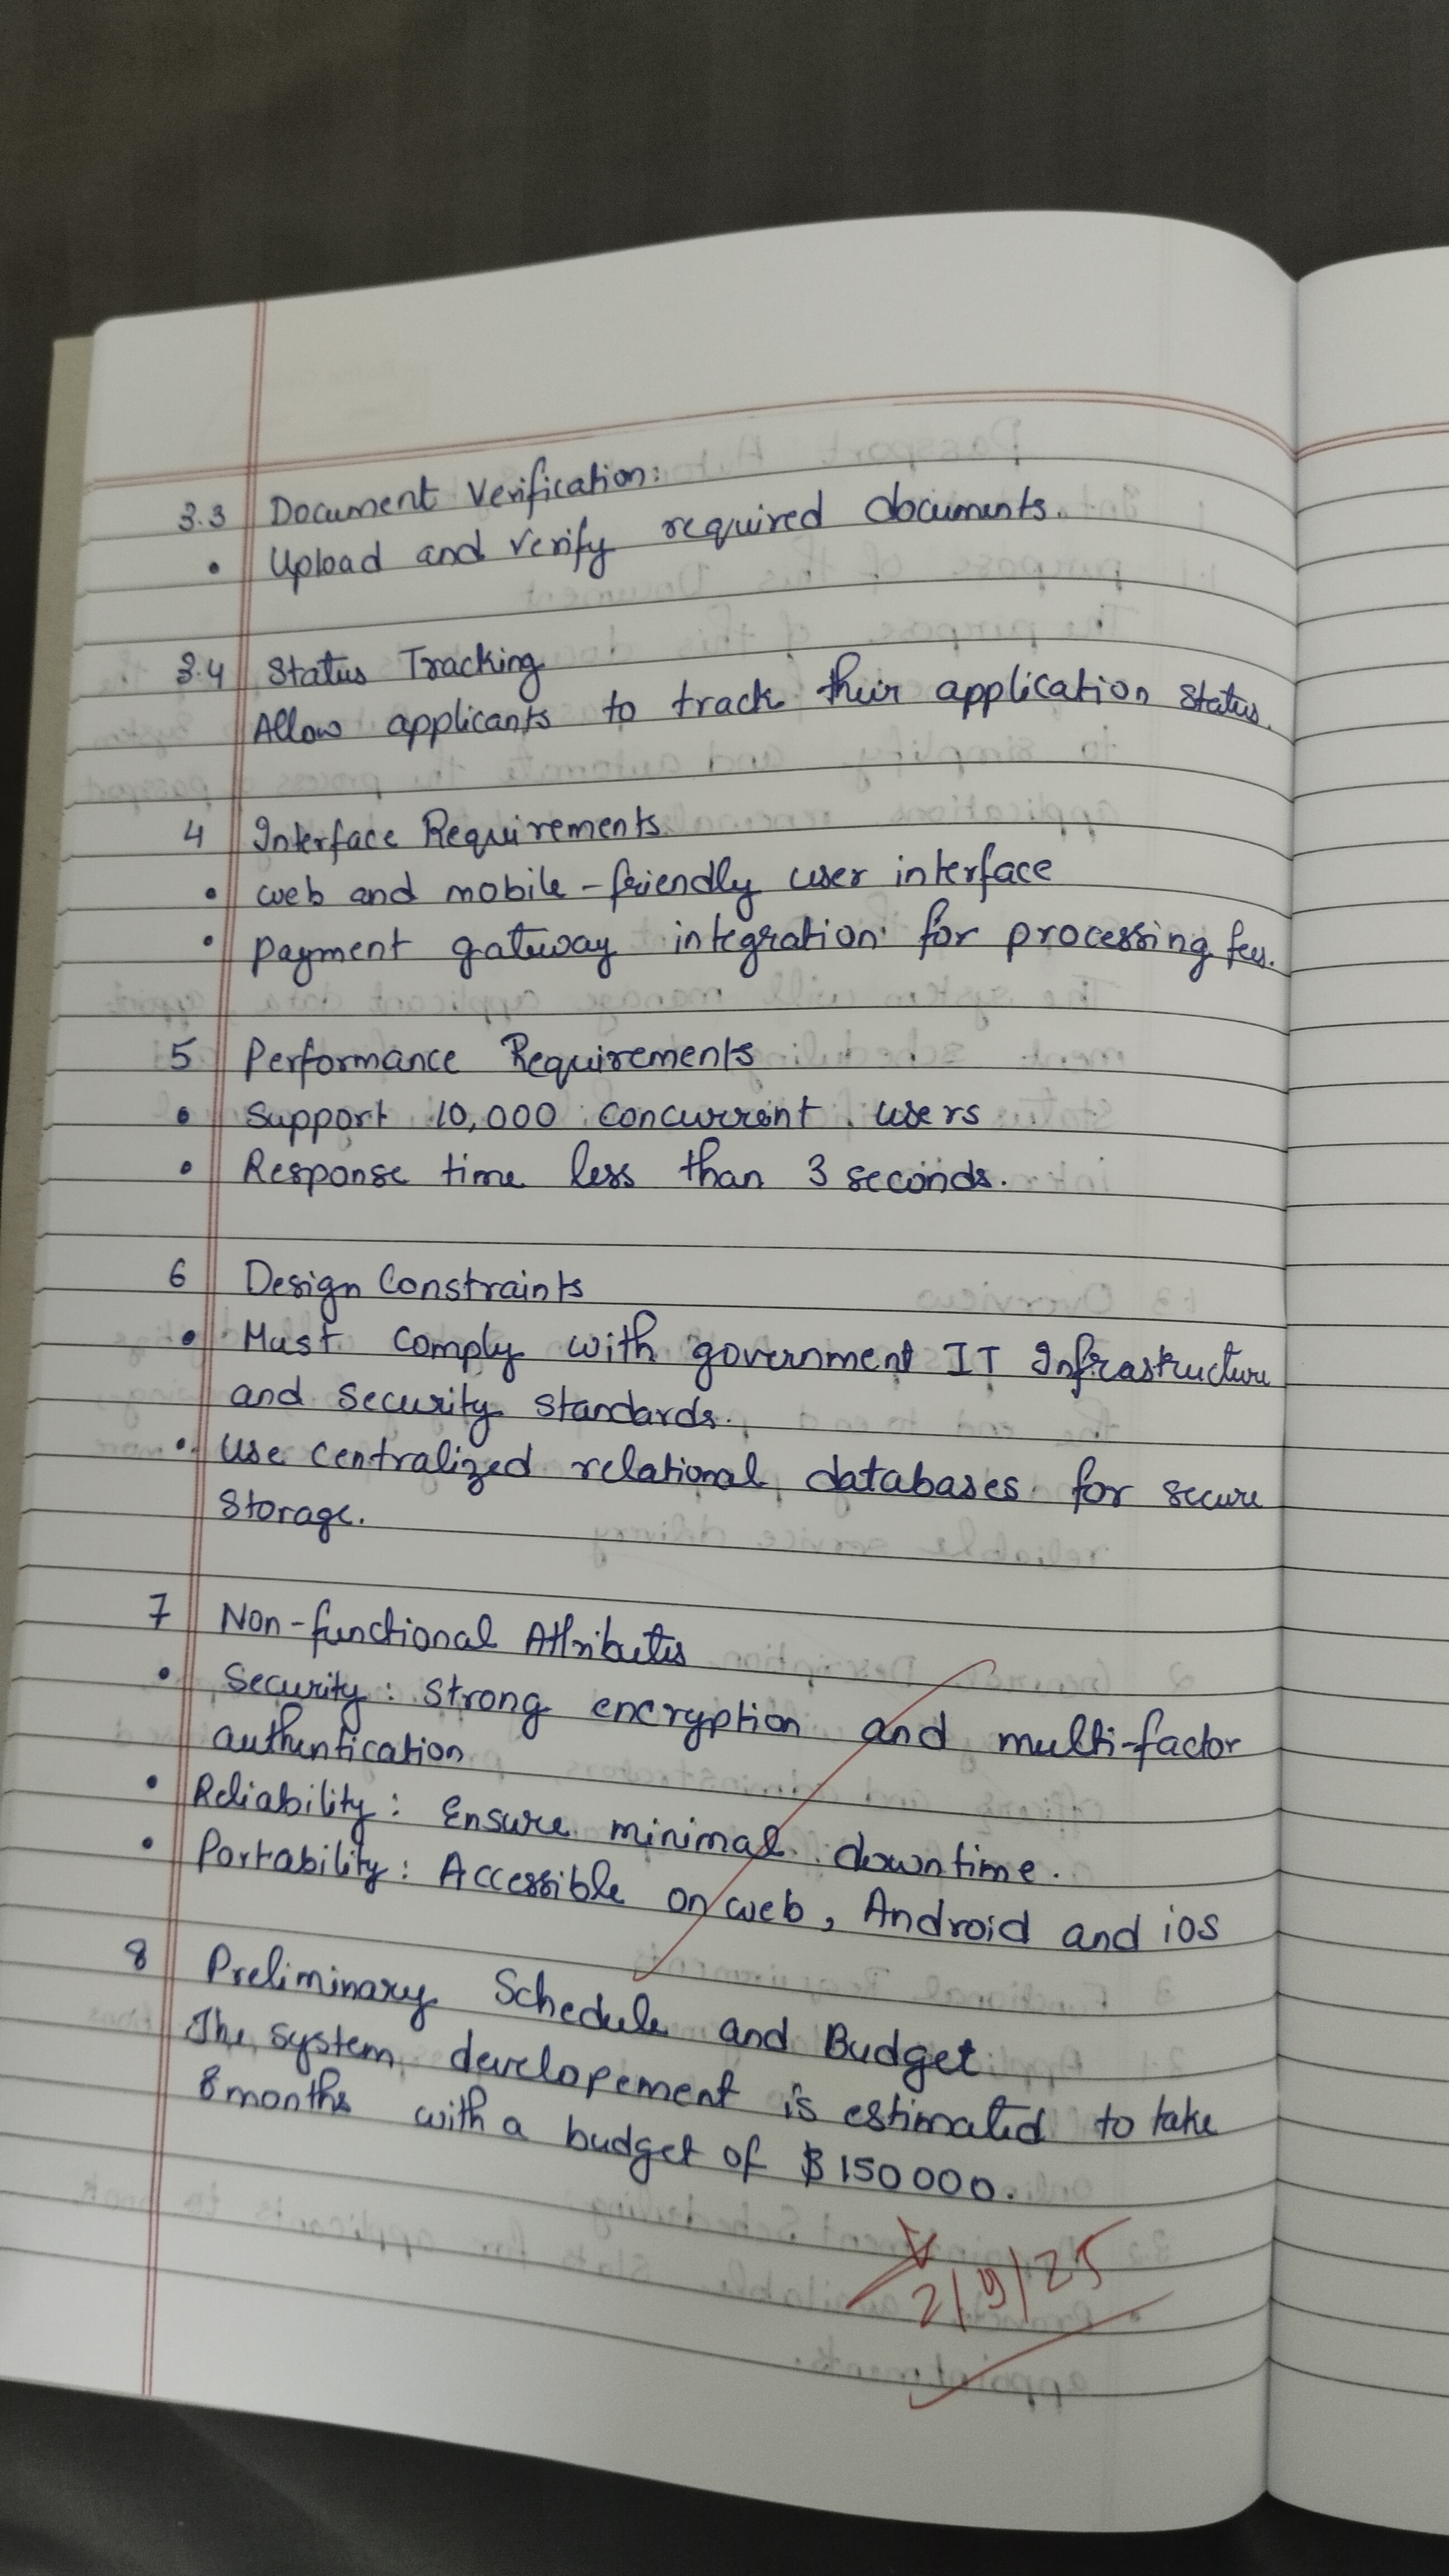 3.3 Document Verification:
• Upload and verify required documents.
3.4 Status Tracking
Allow applicants to track their application status.
4 Interface Requirements
• web and mobile-friendly user interface
• payment gateway integration for processing fees.
5 Performance Requirements
• Support 10,000 concurrent users
• Response time less than 3 seconds.
6 Design Constraints
• Must comply with government IT Infrastructure
and security standards.
• Use centralized relational databases for secure
storage.
7 Non-functional Attributes
• Security: strong encryption and multi-factor
authentication
• Reliability: Ensure minimal downtime.
• Portability: Accessible on web, Android and ios
8 Preliminary Schedule and Budget
The system developement is estimated to take
8 months with a budget of $150000.
2/9/25